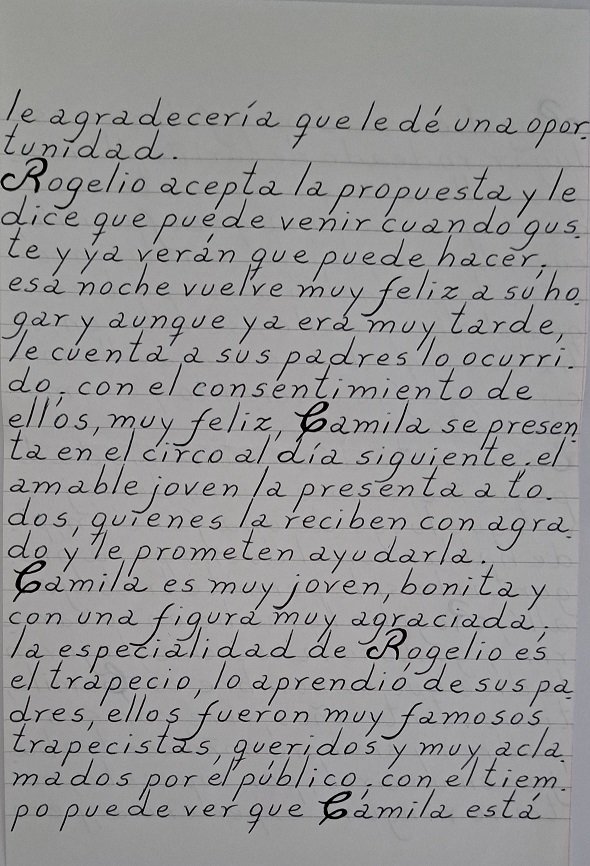 le agradecería que le dé una opor-
tunidad.
Rogelio acepta la propuesta y le
dice que puede venir cuando gus-
te y ya verán que puede hacer;
esa noche vuelve muy feliz a su ho-
gar y aunque ya era muy tarde,
le cuenta a sus padres lo ocurri-
do; con el consentimiento de
ellos, muy feliz, Camila se presen-
ta en el circo al día siguiente; el
amable joven la presenta a to-
dos, quienes la reciben con agra-
do y le prometen ayudarla.
Camila es muy joven, bonita y
con una figura muy agraciada;
la especialidad de Rogelio es
el trapecio, lo aprendió de sus pa-
dres, ellos fueron muy famosos
trapecistas, queridos y muy acla-
mados por el público; con el tiem-
po puede ver que Camila está